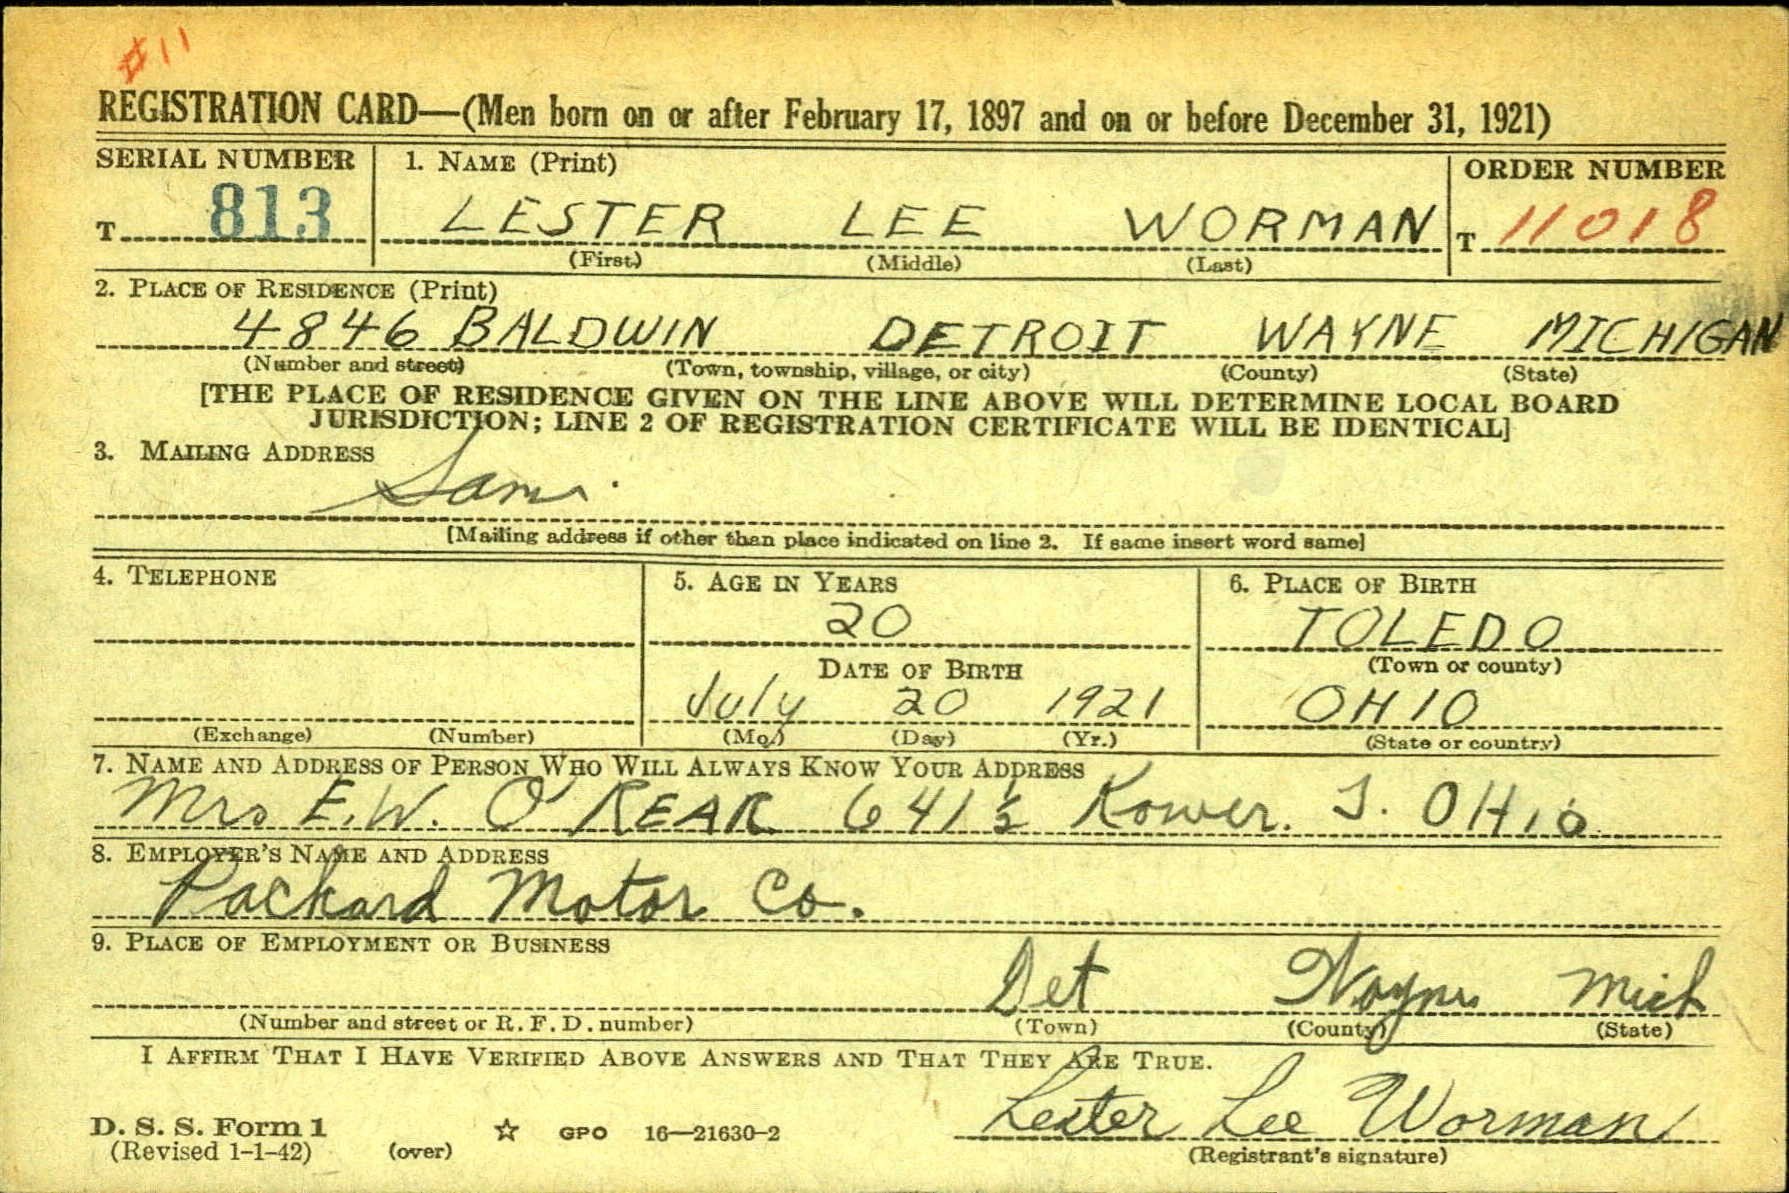 #11
REGISTRATION CARD—(Men born on or after February 17, 1897 and on or before December 31, 1921)
SERIAL NUMBER 1. NAME (Print) ORDER NUMBER
T 813 LESTER LEE WORMAN T 11018
(First) (Middle) (Last)
2. PLACE OF RESIDENCE (Print)
4846 BALDWIN DETROIT WAYNE MICHIGAN
(Number and street) (Town, township, village, or city) (County) (State)
[THE PLACE OF RESIDENCE GIVEN ON THE LINE ABOVE WILL DETERMINE LOCAL BOARD
JURISDICTION; LINE 2 OF REGISTRATION CERTIFICATE WILL BE IDENTICAL]
3. MAILING ADDRESS
Same
[Mailing address if other than place indicated on line 2. If same insert word same]
4. TELEPHONE 5. AGE IN YEARS 6. PLACE OF BIRTH
20 TOLEDO
DATE OF BIRTH (Town or county)
July 20 1921 OHIO
(Exchange) (Number) (Mo.) (Day) (Yr.) (State or country)
7. NAME AND ADDRESS OF PERSON WHO WILL ALWAYS KNOW YOUR ADDRESS
Mrs E.W. O'REAR 641½ Kower. T. OHio
8. EMPLOYER'S NAME AND ADDRESS
Packard Motor Co.
9. PLACE OF EMPLOYMENT OR BUSINESS
Det Wayne Mich
(Number and street or R. F. D. number) (Town) (County) (State)
I AFFIRM THAT I HAVE VERIFIED ABOVE ANSWERS AND THAT THEY ARE TRUE.
Lester Lee Worman
D. S. S. Form 1
(Revised 1-1-42) (over) ☆ GPO 16—21630-2
(Registrant's signature)